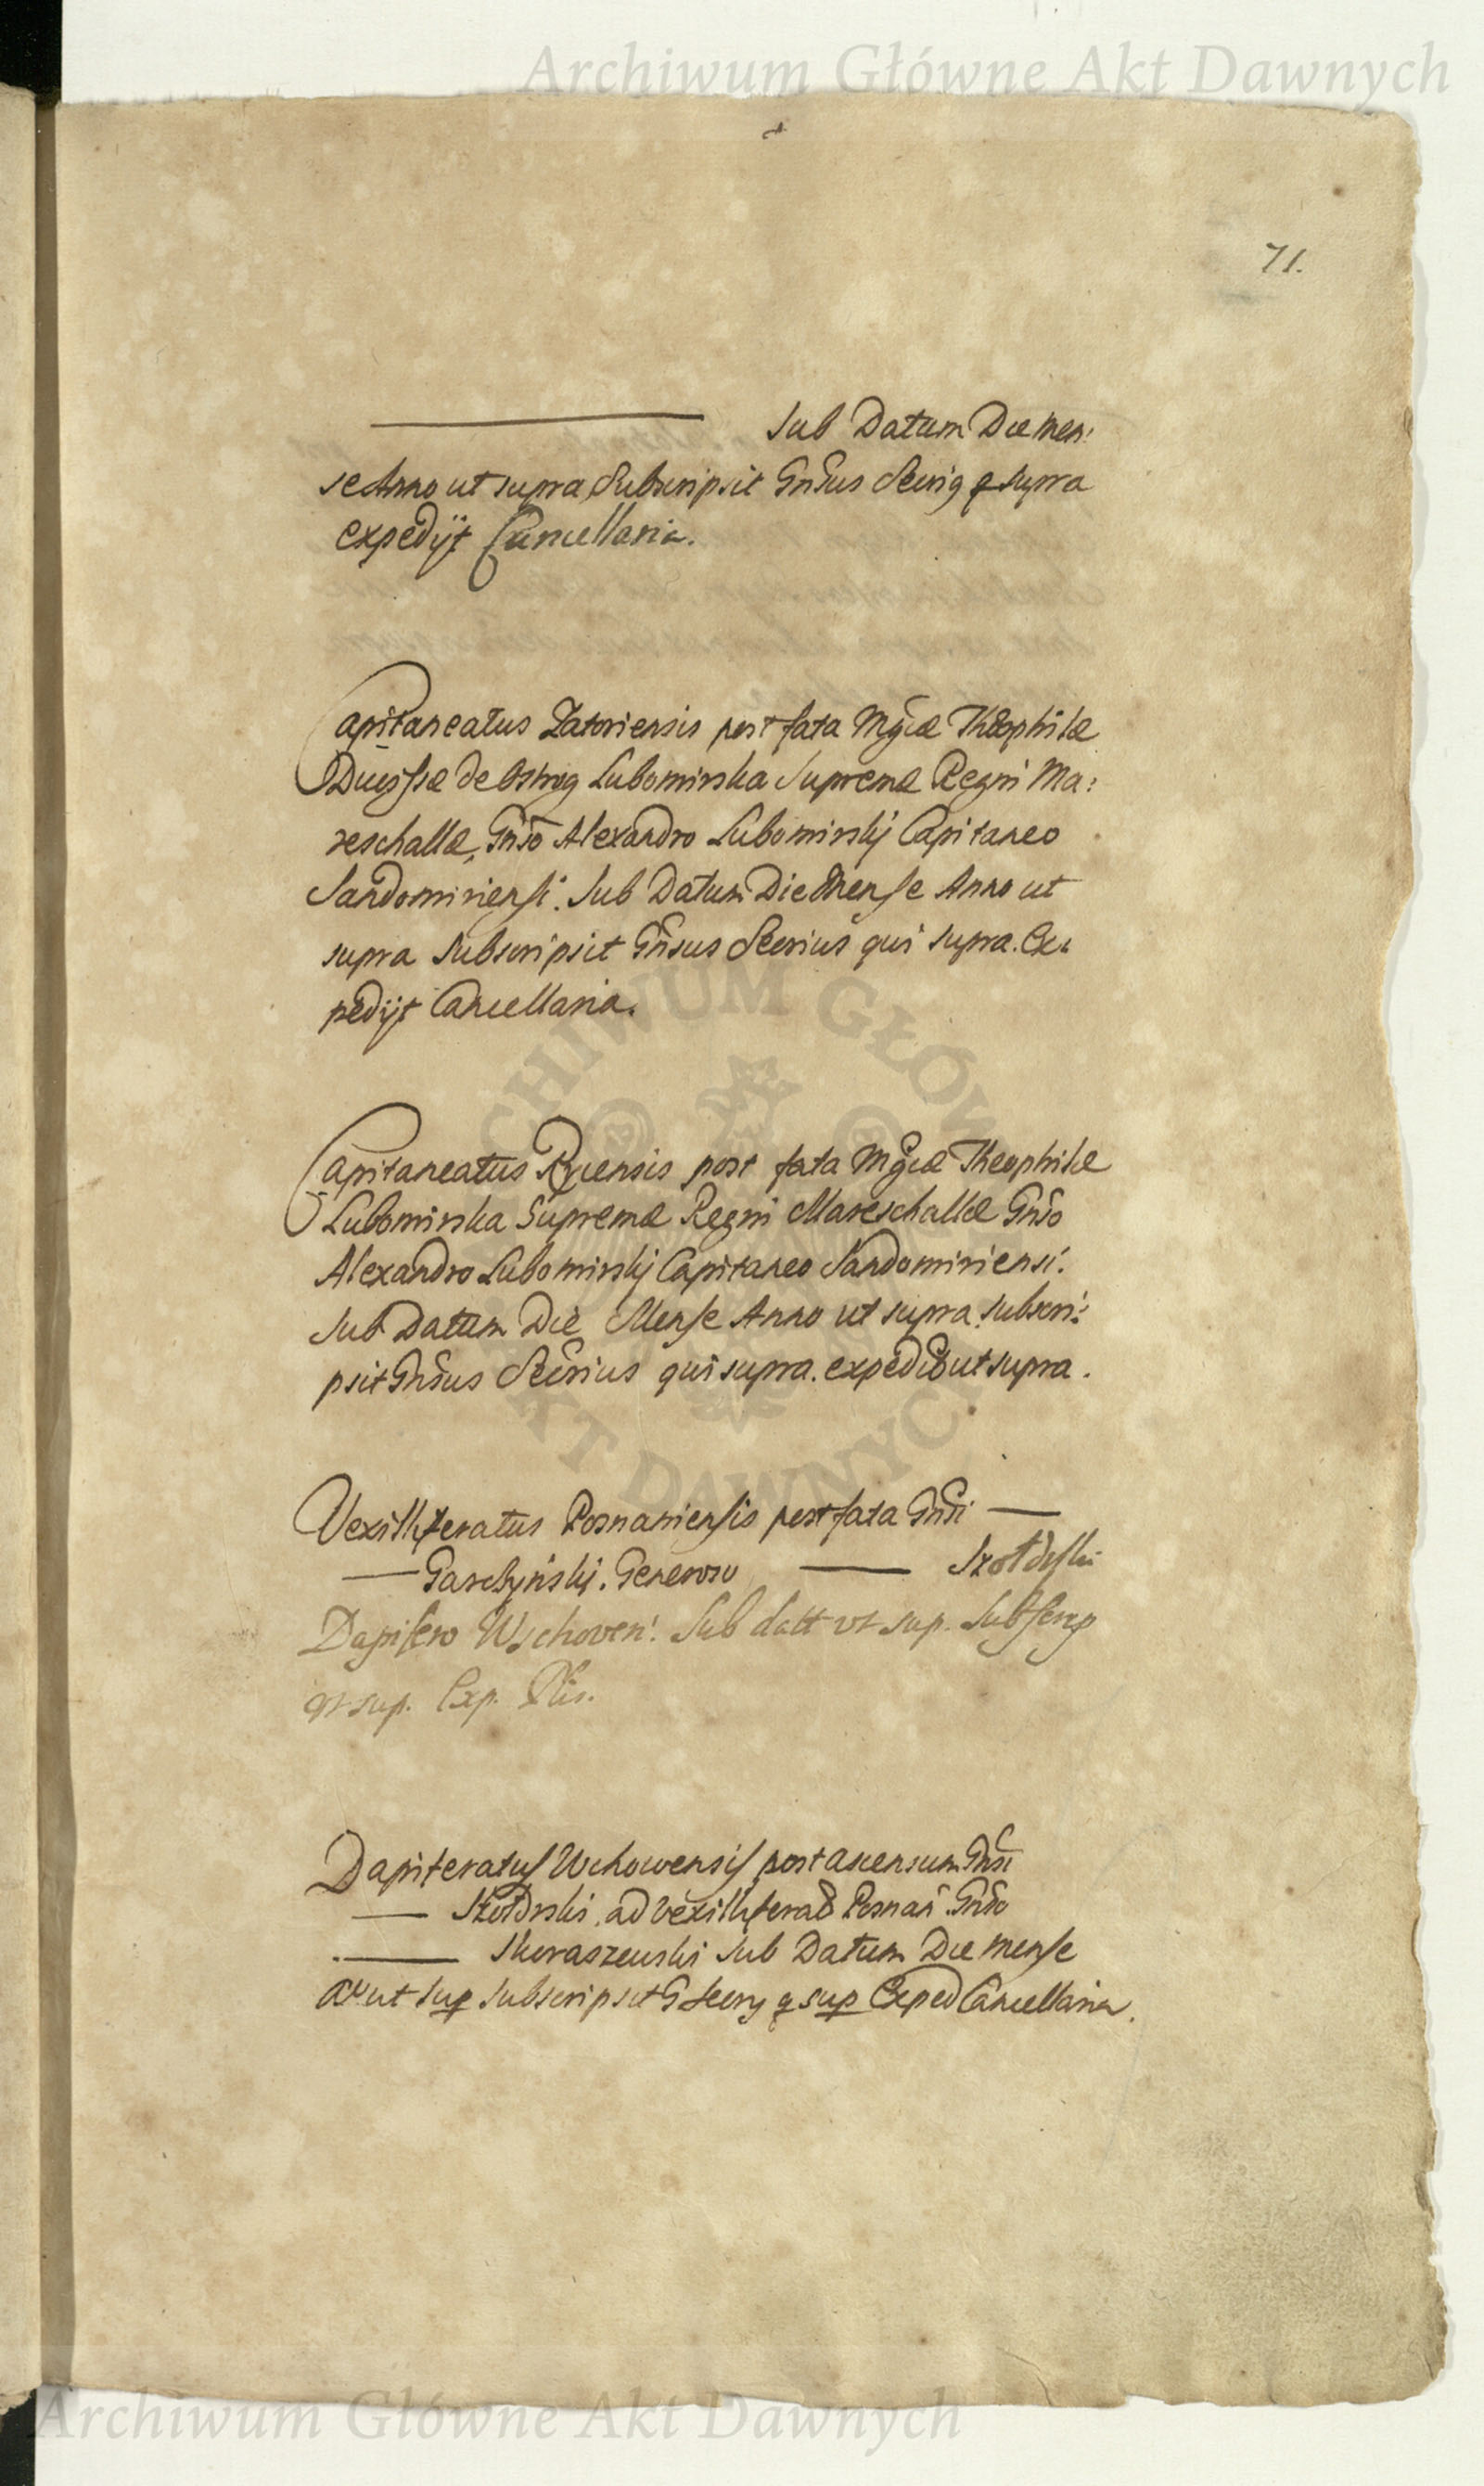 Archiwum Główne Akt Dawnych
71.
Sub Datum Die Men:
se Anno ut supra Subscripsit Gnsus Secrig q supra
expedijt Cancellaria.
Capitaneatus Zatoriensis post fata Mgcæ Theophilæ
Ducissæ de Ostrog Lubomirska Supremæ Regni Ma:
reschallæ, Gnso Alexandro Lubomirskij Capitaneo
Sandomiriensi. Sub Datum Die Mense Anno ut
supra Subscripsit Gnsus Secrius qui supra. Ex:
pedijt Cancellaria.
Capitaneatus Rycensis post fata Mgcæ Theophilæ
Lubomirska Supremæ Regni Mareschallæ Gnso
Alexandro Lubomirskij Capitaneo Sandomiriensi.
Sub Datum Die Mense Anno ut supra, subscri:
psit Gnsus Secrius qui supra. expedit ut supra.
Vexilliferatus Posnaniensis post fata Gnsi —
— Garczyński. Generoso — Szołdrski
Dapifero Wschoven: Sub datt ut sup. Subscrip
ut sup. Exp.
Dapiferatus Wchowensis post ascensum Gnsi
— Szołdrski ad Vexilliferat Posnań Gnso
— Skoraszewski Sub Datum Die Mense
Ao ut sup Subscripsit G Secrg q sup Exped Cancellaria.
ARCHIWUM GŁÓWNE AKT DAWNYCH
Archiwum Główne Akt Dawnych